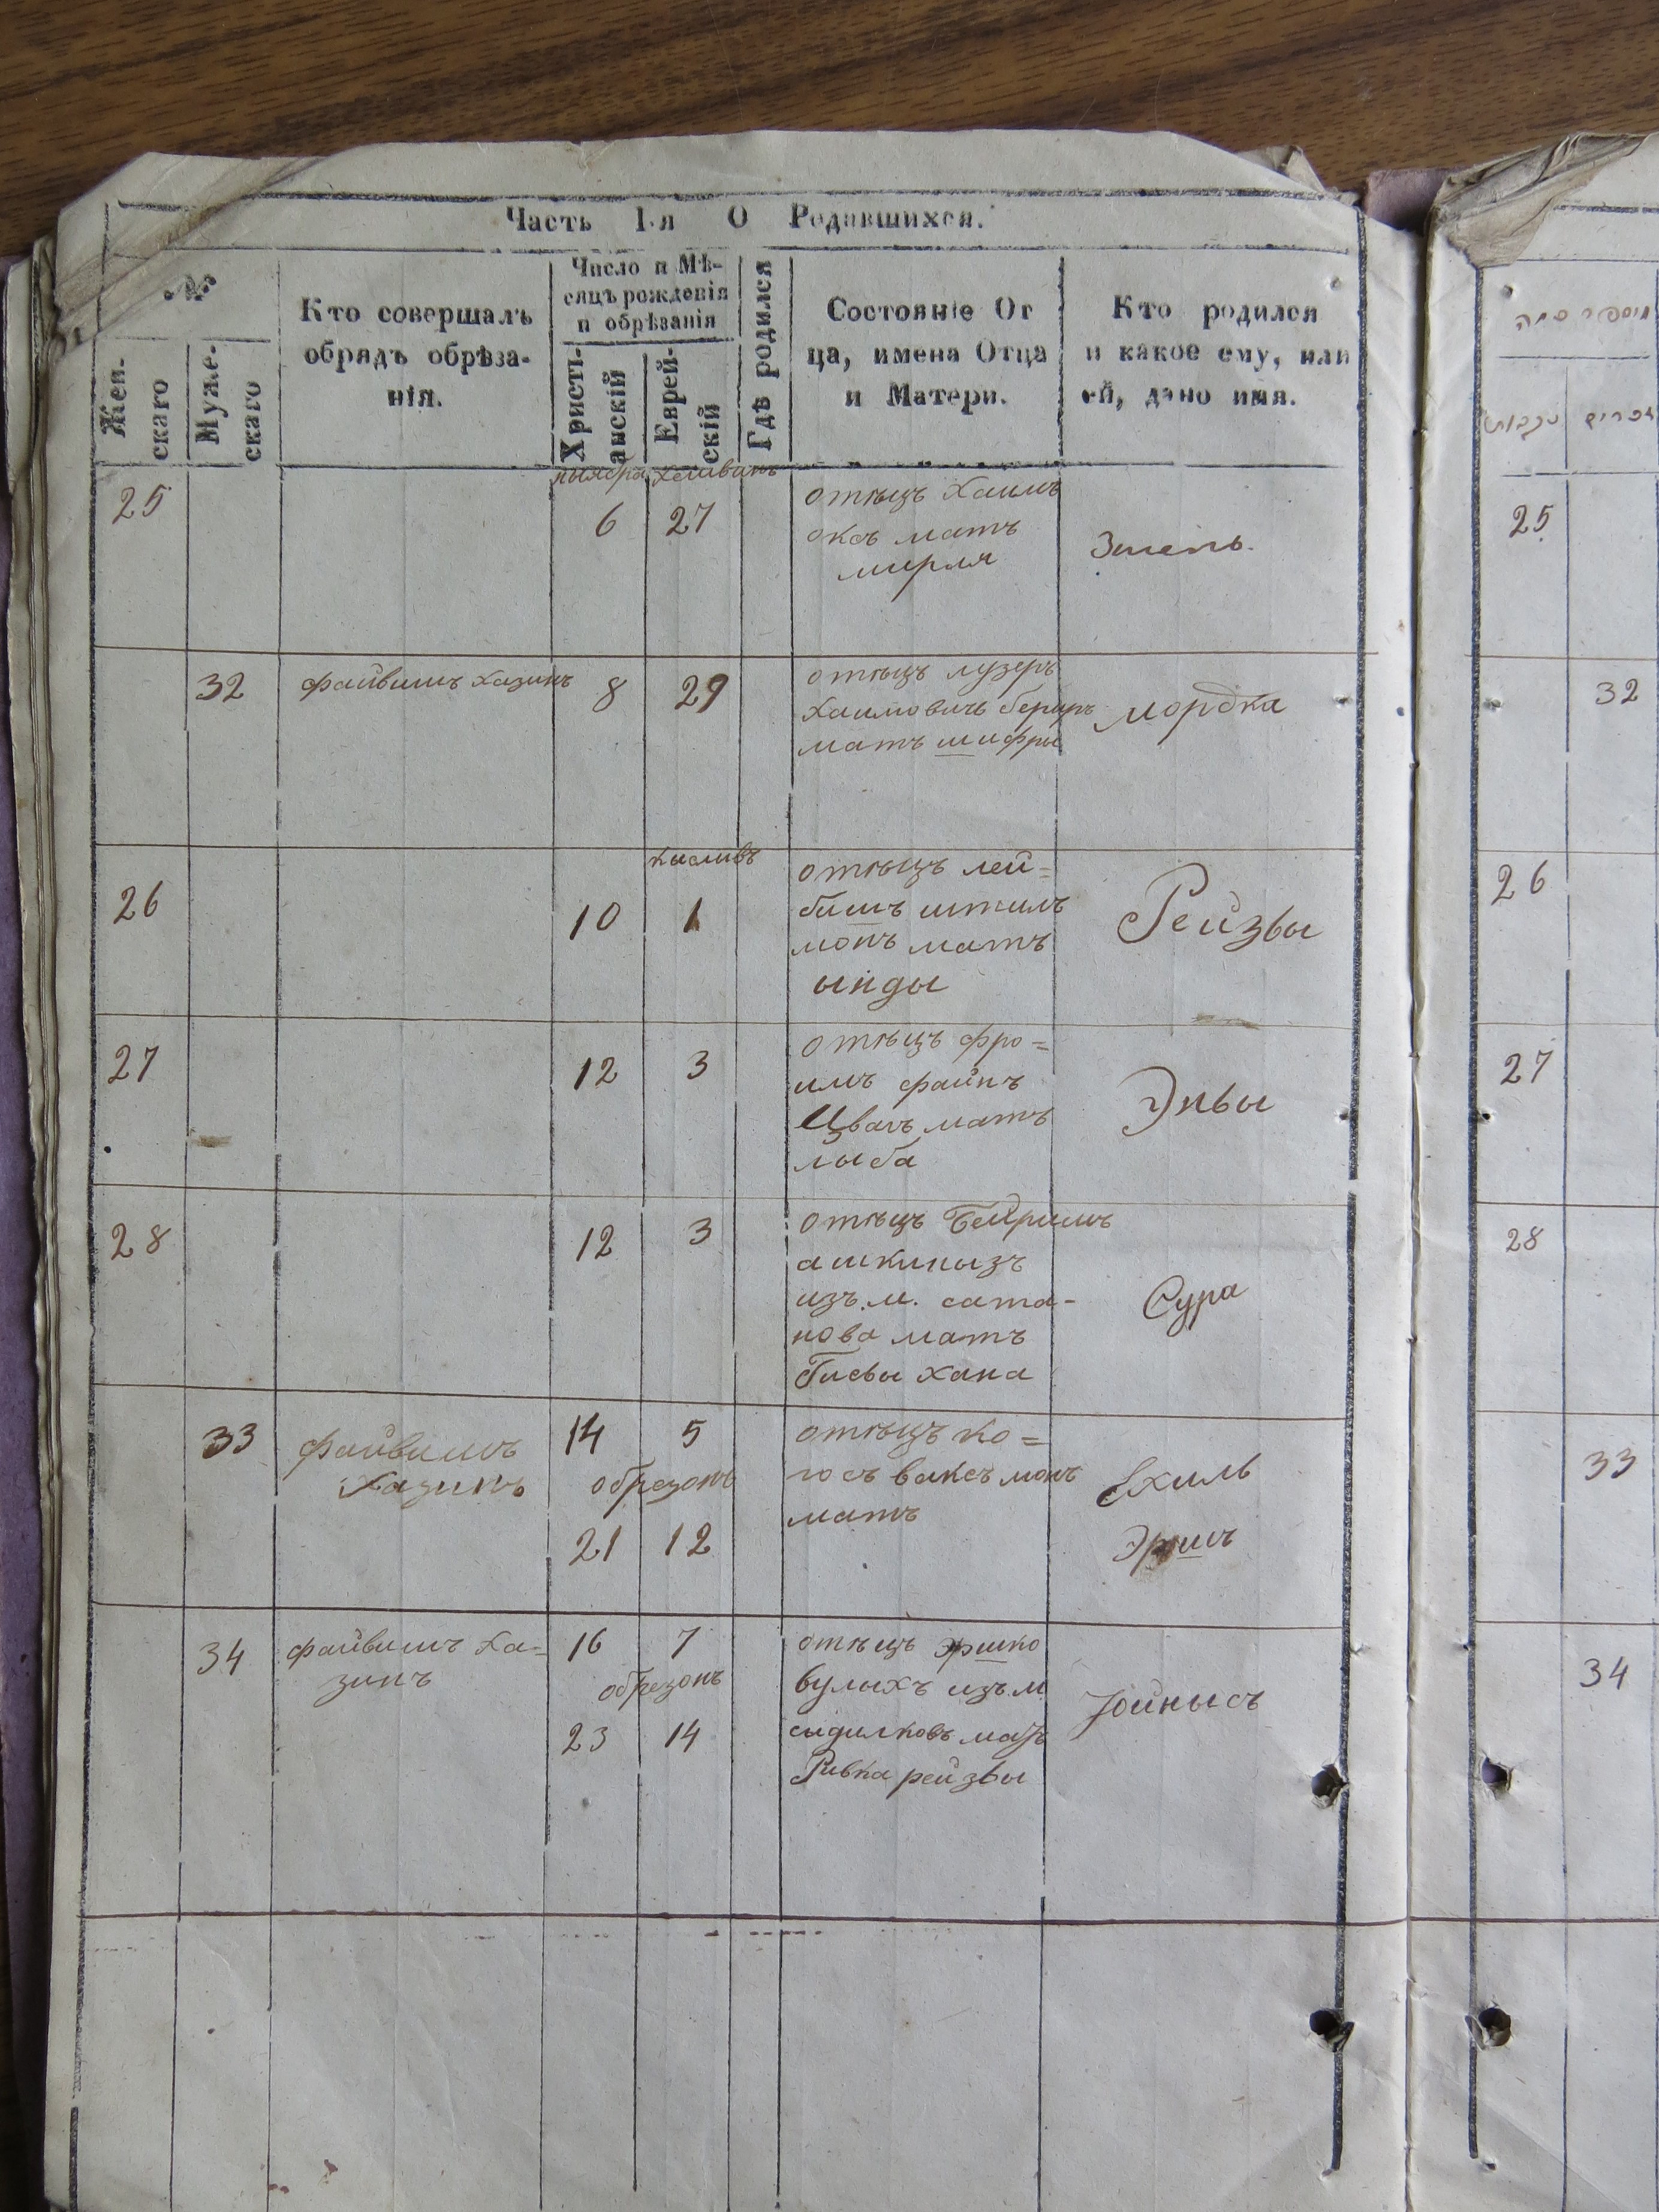 Часть I-я О Родившихся.
№
Жен-
скаго
Муже-
скаго
Кто совершалъ
обрядъ обрѣза-
нія.
Число и Мѣ-
сяцъ рожденія
и обрѣзанія
Христі-
анскій
Еврей-
скій
Гдѣ родился
Состояніе От
ца, имена Отца
и Матери.
Кто родился
и какое ему, или
ей, дано имя.
25
6 27
отѣцъ Хаимъ
оксъ матъ
мирля
32
файвишъ хазинъ
8 29
отѣцъ лузеръ
Хаимовичъ
матъ шифры
мордка
кисливъ
26
10 1
отѣцъ лей=
бишъ штиль
монъ матъ
ынды
Рейзвы
27
12 3
отѣцъ фро=
имъ файнъ
матъ
лыба
Энвы
28
12 3
отѣцъ Бейришъ
ашкинызъ
изъ м. сата-
нова матъ
хана
Сура
33
файвишъ
Хазинъ
14 5
обрезонъ
21 12
отѣцъ ко=
госъ ваксъмонъ
матъ
Ехиль
Эршъ
34
файвишъ ха-
зинъ
16 7
обрезонъ
23 14
отѣцъ эршко
вулыхъ изъ м
сыдилковъ матъ
Ривка рейзвы
Йойнысъ
25
32
26
27
28
33
34